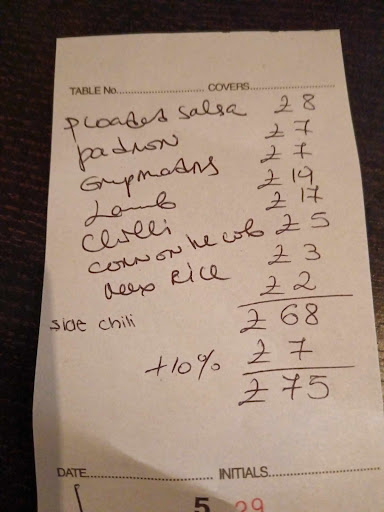 TABLE No. COVERS
P Loaded Salsa £8
padron £7
£7
Lamb £19
Chilli £17
corn on the cob £5
Mex Rice £3
side chili £2
£68
+10% £7
£75
DATE INITIALS
5 29